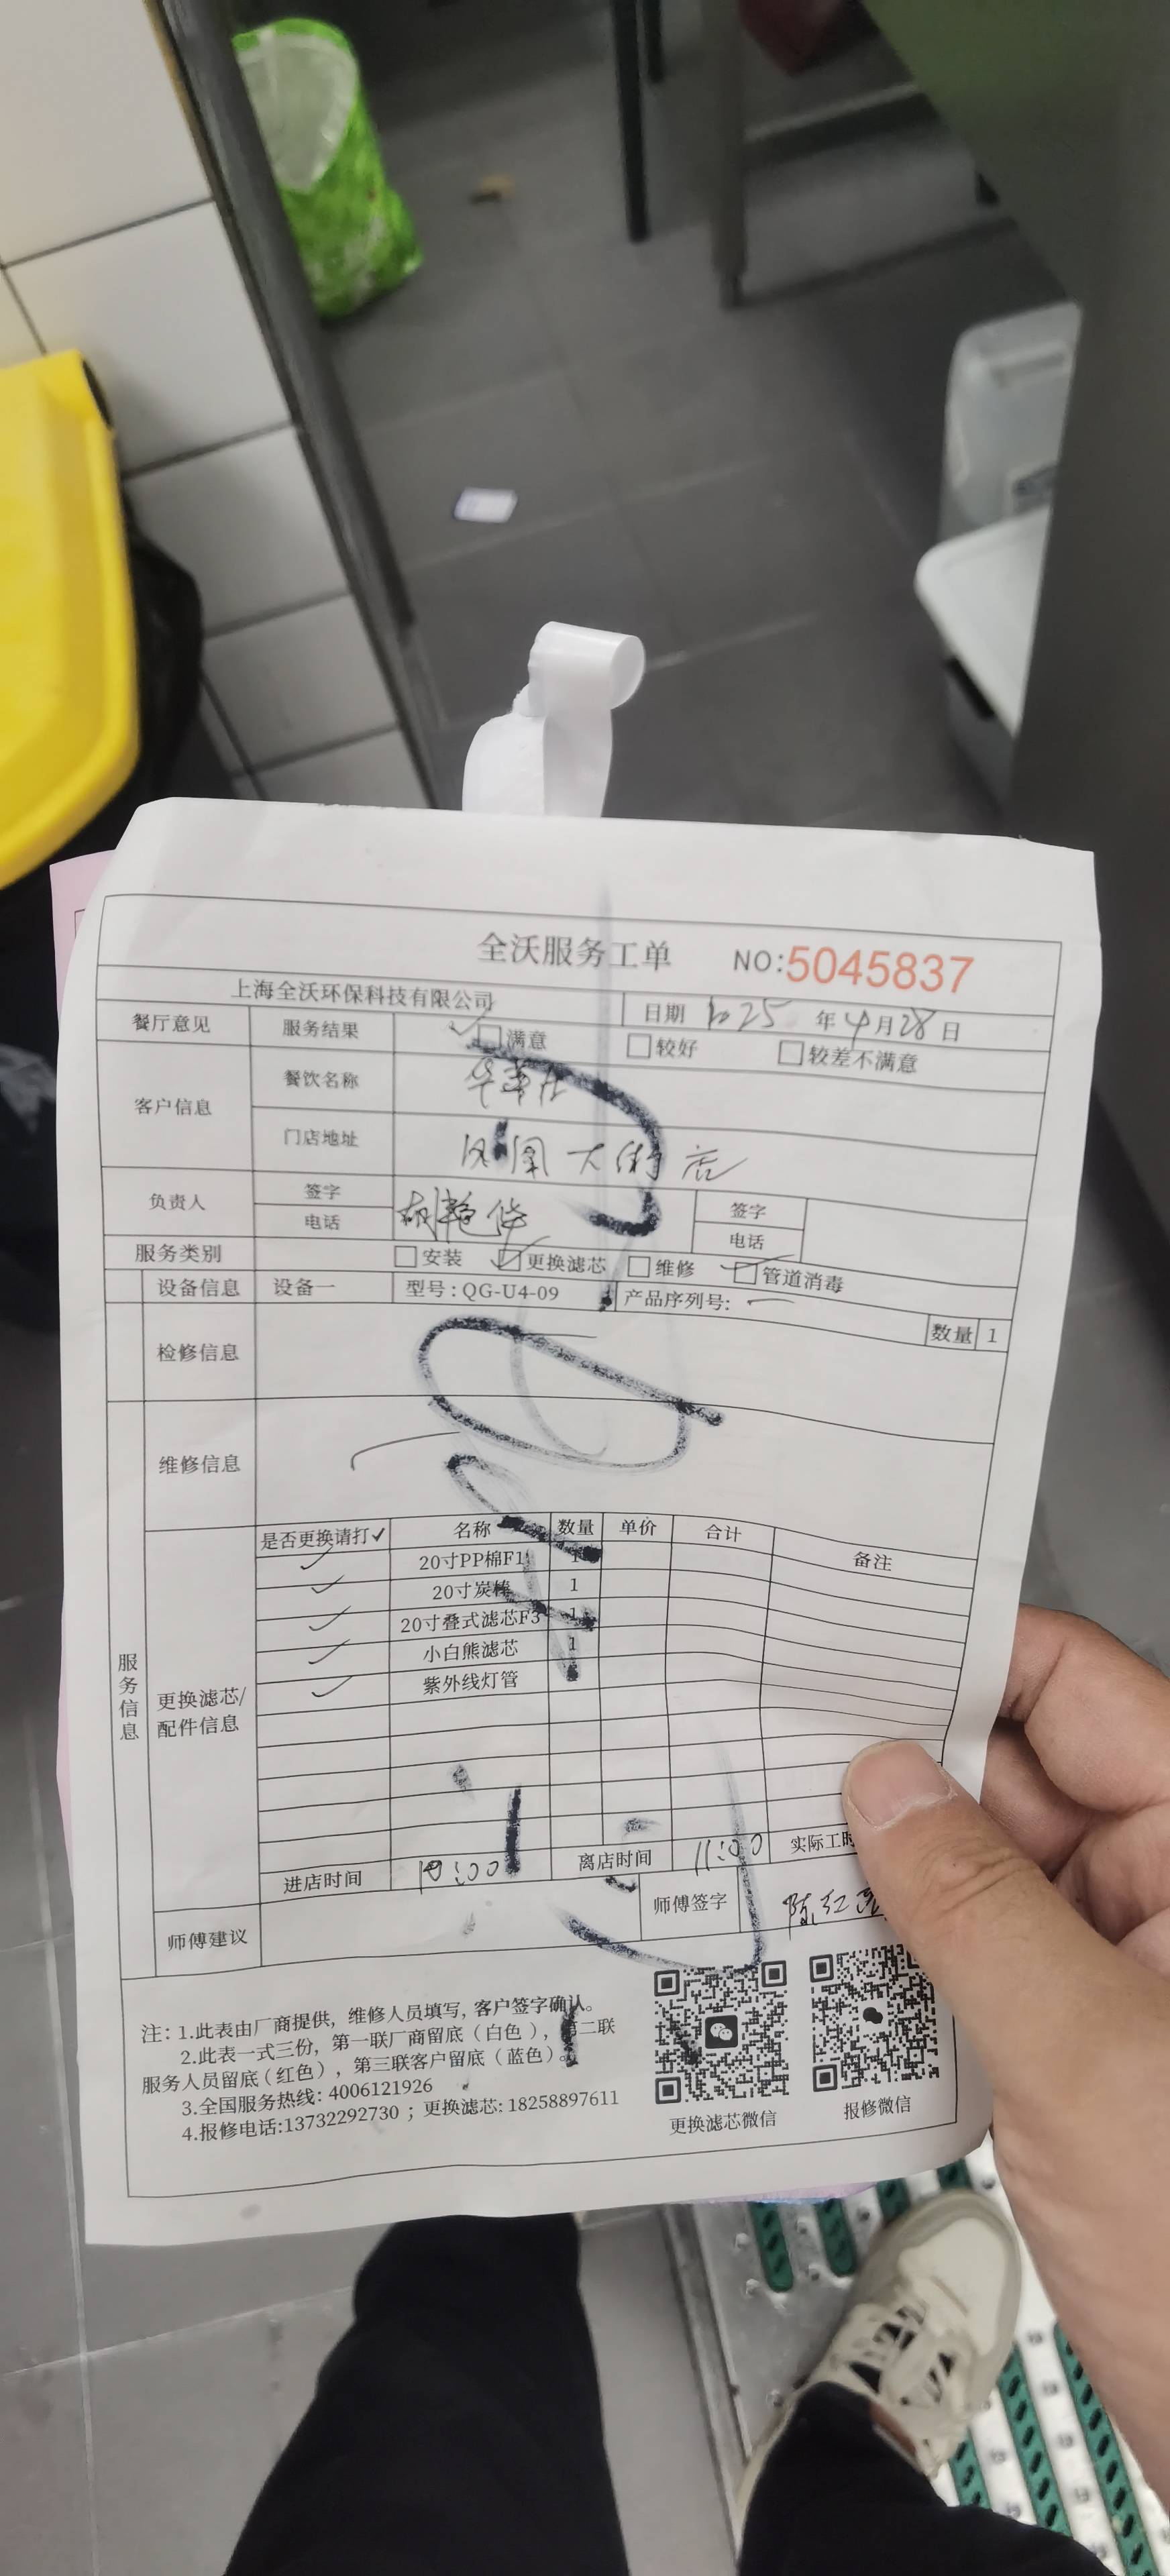 全沃服务工单 NO:5045837
上海全沃环保科技有限公司 日期 2025 年 4 月 28 日
餐厅意见 服务结果 满意 较好 较差不满意
客户信息 餐饮名称 华莱士
门店地址 凤凰大街店
负责人 签字 胡艳华 签字
电话 电话
服务类别 安装 更换滤芯 维修 管道消毒
设备信息 设备一 型号:QG-U4-09 产品序列号:
数量 1
检修信息
维修信息
服务信息
是否更换请打✓ 名称 数量 单价 合计 备注
✓ 20寸PP棉F1 1
✓ 20寸炭棒 1
✓ 20寸叠式滤芯F3 1
✓ 小白熊滤芯 1
✓ 紫外线灯管
更换滤芯/
配件信息
进店时间 10:00 离店时间 11:00 实际工时
师傅建议 师傅签字 陈红
注: 1.此表由厂商提供，维修人员填写, 客户签字确认。
2.此表一式三份，第一联厂商留底（白色），第二联
服务人员留底(红色)，第三联客户留底（蓝色）。
3.全国服务热线: 4006121926
4.报修电话:13732292730；更换滤芯: 18258897611
更换滤芯微信 报修微信